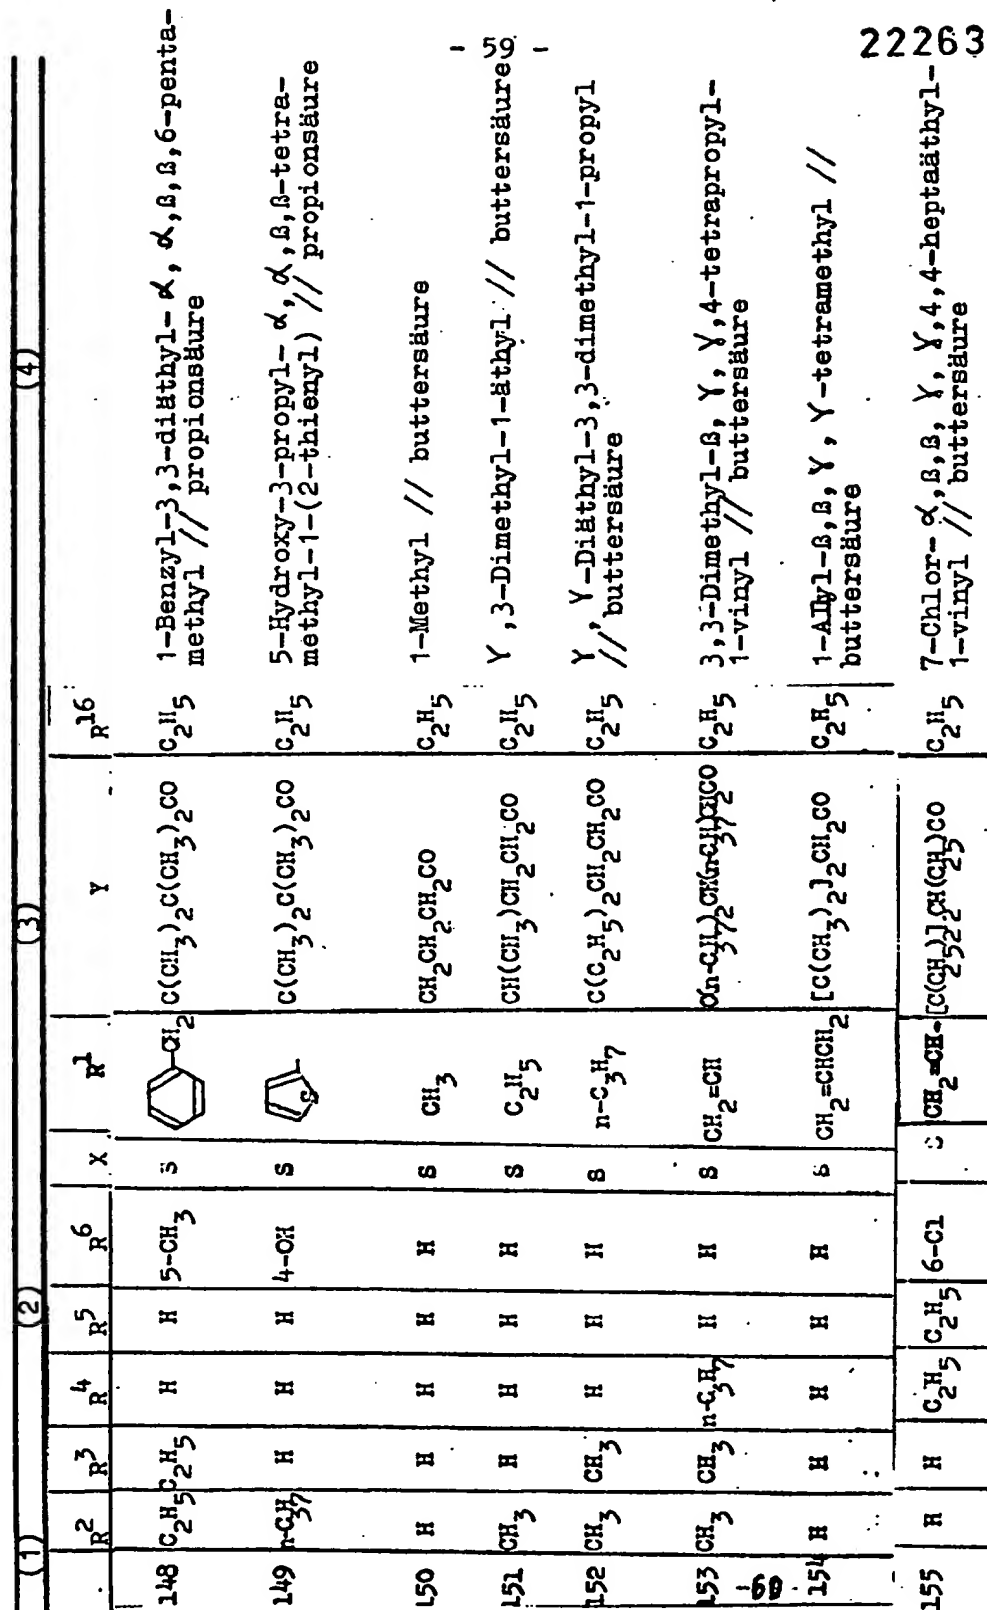 - 59 -
22263
(1) (2) (3) (4)
R2 R3 R4 R5 R6 X R1 Y R16
148 C2H5 C2H5 H H 5-CH3 S -CH2 C(CH3)2C(CH3)2CO C2H5 1-Benzyl-3,3-diäthyl-α, α,ß,ß,6-penta-
methyl // propionsäure
149 n-C3H7 H H H 4-OH S S C(CH3)2C(CH3)2CO C2H5 5-Hydroxy-3-propyl-α,α,ß,ß-tetra-
methyl-1-(2-thienyl) // propionsäure
150 H H H H H S CH3 CH2CH2CH2CO C2H5 1-Methyl // buttersäure
151 CH3 H H H H S C2H5 CH(CH3)CH2CH2CO C2H5 γ,3-Dimethyl-1-äthyl // buttersäure
152 CH3 CH3 H H H S n-C3H7 C(C2H5)2CH2CH2CO C2H5 γ, γ-Diäthyl-3,3-dimethyl-1-propyl
// buttersäure
153 CH3 CH3 n-C3H7 H H S CH2=CH C(n-C3H7)2CH(n-C3H7)CH2CO C2H5 3,3-Dimethyl-ß, γ, γ,4-tetrapropyl-
1-vinyl // buttersäure
154 H H H H H S CH2=CHCH2 [C(CH3)2]2CH2CO C2H5 1-Allyl-ß,ß, γ, γ-tetramethyl //
buttersäure
-60-
155 H H C2H5 C2H5 6-Cl CH2=CH- [C(C2H5)2]2CH(C2H5)CO C2H5 7-Chlor-α,ß,ß, γ, γ,4,4-heptaäthyl-
1-vinyl // buttersäure